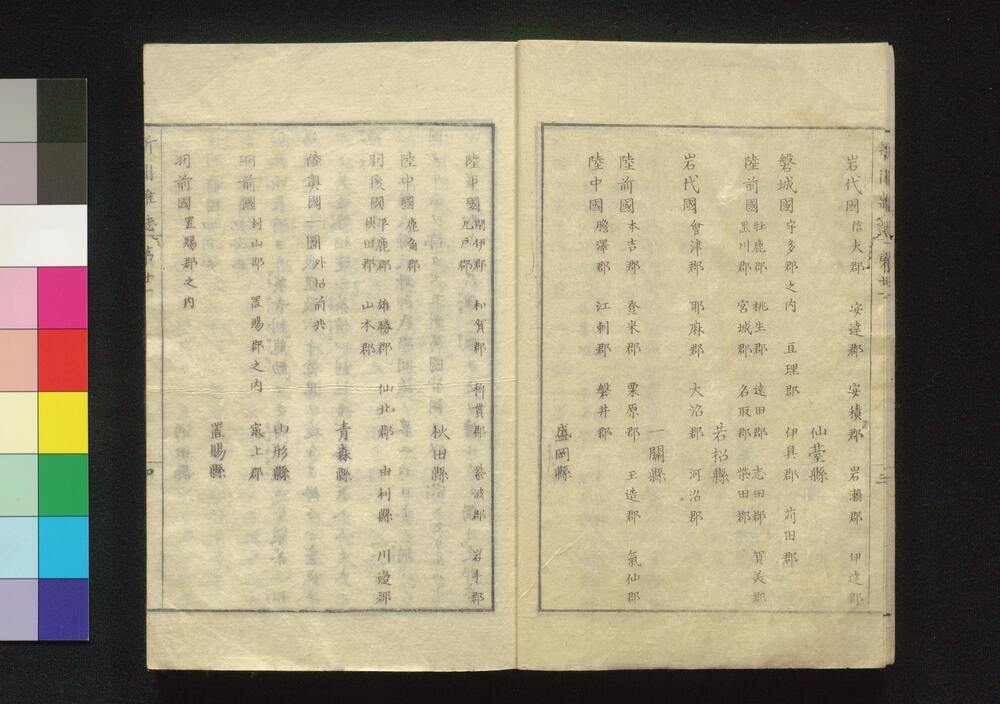 岩代國 信夫郡 安達郡 安積郡 岩瀬郡 伊達郡
仙臺縣
磐城國 宇多郡之内 亘理郡 伊具郡 苅田郡
陸前國 牡鹿郡 桃生郡 遠田郡 志田郡 賀美郡
黒川郡 宮城郡 名取郡 柴田郡
若松縣
岩代國 會津郡 耶麻郡 大沼郡 河沼郡
一關縣
陸前國 本吉郡 登米郡 栗原郡 玉造郡 氣仙郡
陸中國 膽澤郡 江刺郡 磐井郡
盛岡縣
陸中國 閉伊郡 和賀郡 稗貫郡 紫波郡 岩手郡
九戸郡
秋田縣
陸中國 鹿角郡
羽後國 平鹿郡 雄勝郡 仙北郡 由利縣 川邉郡
秋田郡 山本郡
青森縣
陸奥國一圓
山形縣
羽前國 村山郡 置賜郡之内 最上郡
置賜縣
羽前國 置賜郡之内